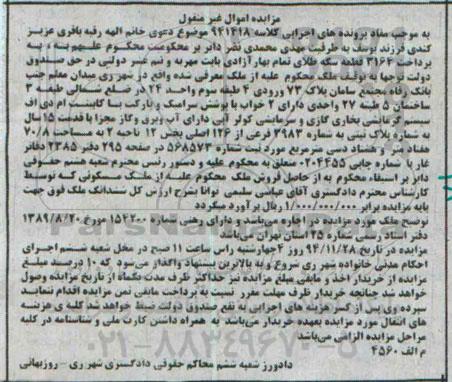 مزایده اموال غیر منقول
به موجب مفاد پرونده های اجرایی کلاسه ۹۴۱۴۱۸ موضوع دعوی خانم الهه رقیه باقری عزیز
کندی فرزند یوسف به طرفیت مهدی محمدی نضر دائر بر محکومیت محکوم علیهم به، به
پرداخت ۳۱۶۴ قطعه سکه طلای تمام بهار آزادی بابت مهریه و نیم عشر دولتی در حق صندوق
دولت توجها به توقیف ملک محکوم علیه از ملک معرفی شده واقع در شهر ری میدان معلم جنب
بانک رفاه مجتمع سامان پلاک ۷۳ ورودی ۴ طبقه سوم واحد ۲۴ در ضلع شمالی طبقه ۳
ساختمان ۵ طبقه ۲۷ واحدی دارای ۲ خواب با پوشش سرامیک و پارکت با کابینت ام دی اف
سیستم گرمایشی بخاری گازی و سرمایشی کولر آبی دارای آب وبرق وگاز مجزا با قدمت ۱۵سال
به شماره پلاک ثبتی به شماره ۳۹۸۳ فرعی از ۱۲۶ اصلی بخش ۱۲ ناحیه ۲ به مساحت ۷۰/۸
هفتاد متر و هشتاد دسی مترمربع مورد ثبت شماره ۵۶۸۵۷۳ در صفحه ۲۹۵ دفتر ۲۳۸۵ دفاتر
غار با شماره چاپی ۰۲۰۴۴۵۵ متعلق به محکوم علیه و دستور رئیس محترم شعبه هشتم حقوقی
دائر بر استیفاء محکوم به از حاصل فروش ملک محکوم علیه از ملک مسکونی که توسط
کارشناس محترم دادگستری آقای عباس سلیمی توانا بشرح ارزش کل ششدانگ ملک فوق جهت
پایه مزایده برابر ۱/۰۰۰/۰۰۰/۰۰۰ ریال برآورد میگردد
توضیح ملک مورد مزایده در اجاره می‌باشد و دارای رهنی شماره ۱۵۴۲۰۰ مورخ ۱۳۸۹/۸/۲۰
دفتر اسناد رسمی شماره ۲۵ استان تهران می‌باشد
مزایده در تاریخ ۹۴/۱۱/۲۸ روز ۴چهارشنبه راس ساعت ۱۱ صبح در محل شعبه ششم اجرای
احکام مدنی خانواده شهر ری شروع و به بالاترین پیشنهاد واگذار می‌شود که ۱۰ درصد مبلغ
مزایده از خریدار اخذ و مابقی مبلغ مزایده نیز حداکثر ظرف مدت یکماه از تاریخ مزایده وصول
خواهد شد چنانچه خریدار ظرف مهلت مقرر نسبت به پرداخت مابقی ثمن مزایده اقدام ننماید
سپرده وی پس از کسر هزینه های اجرایی به نفع صندوق دولت ضبط خواهد شد کلیه ی هزینه
های انتقال مورد مزایده بعهده خریدار می‌باشد به همراه داشتن کارت ملی و شناسنامه در کلیه
مراحل مزایده الزامی می‌باشد
م الف ۴۵۶۰
دادورز شعبه ششم محاکم حقوقی دادگستری شهر ری – روزبهانی
۰۲۱-۸۸۳۴۹۶۷۰-۵